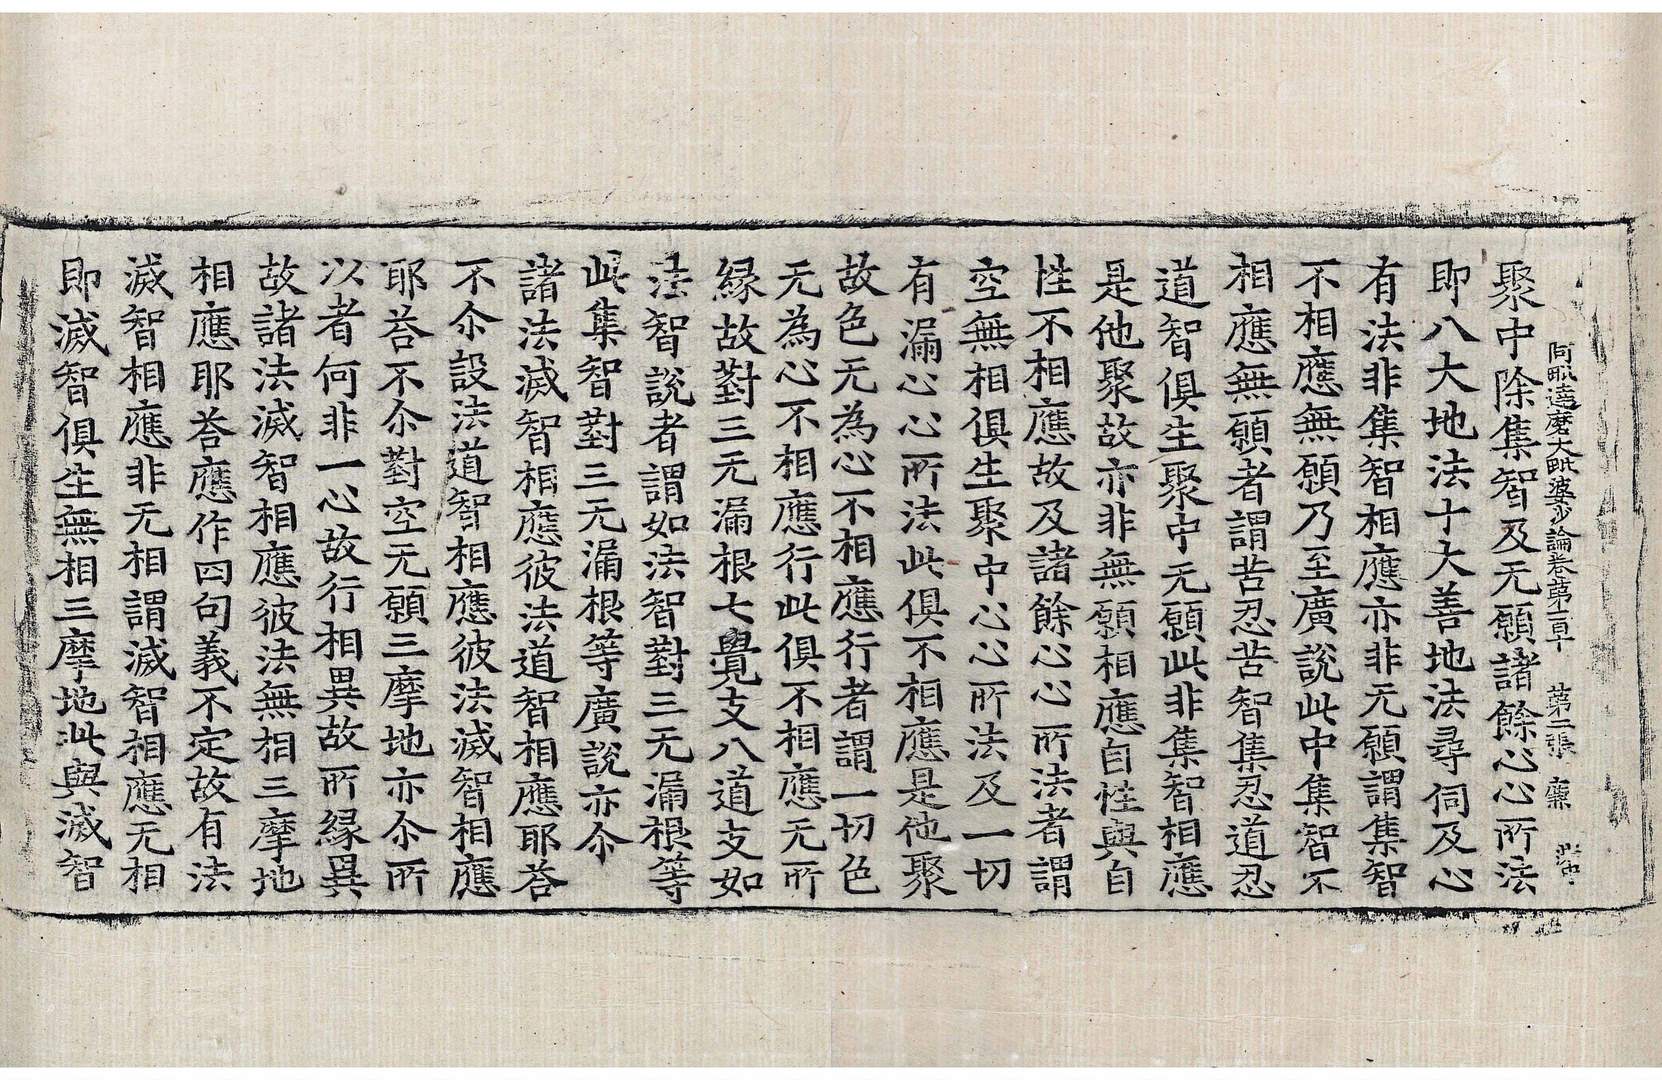 阿毗達磨大毗婆沙論卷第一百 第二張 廉
聚中除集智及无願諸餘心心所法
即八大地法十大善地法尋伺及心
有法非集智相應亦非无願謂集智
不相應無願乃至廣說此中集智不
相應無願者謂苦忍苦智集忍道忍
道智俱生聚中无願此非集智相應
是他聚故亦非無願相應自性與自
性不相應故及諸餘心心所法者謂
空無相俱生聚中心心所法及一切
有漏心心所法此俱不相應是他聚
故色无為心不相應行者謂一切色
无為心不相應行此俱不相應无所
緣故對三无漏根七覺支八道支如
法智說者謂如法智對三无漏根等
此集智對三无漏根等廣說亦尒
諸法滅智相應彼法道智相應耶荅
不尒設法道智相應彼法滅智相應
耶荅不尒對空无願三摩地亦尒所
以者何非一心故行相異故所緣異
故諸法滅智相應彼法無相三摩地
相應耶荅應作四句義不定故有法
滅智相應非无相謂滅智相應无相
即滅智俱生無相三摩地此與滅智